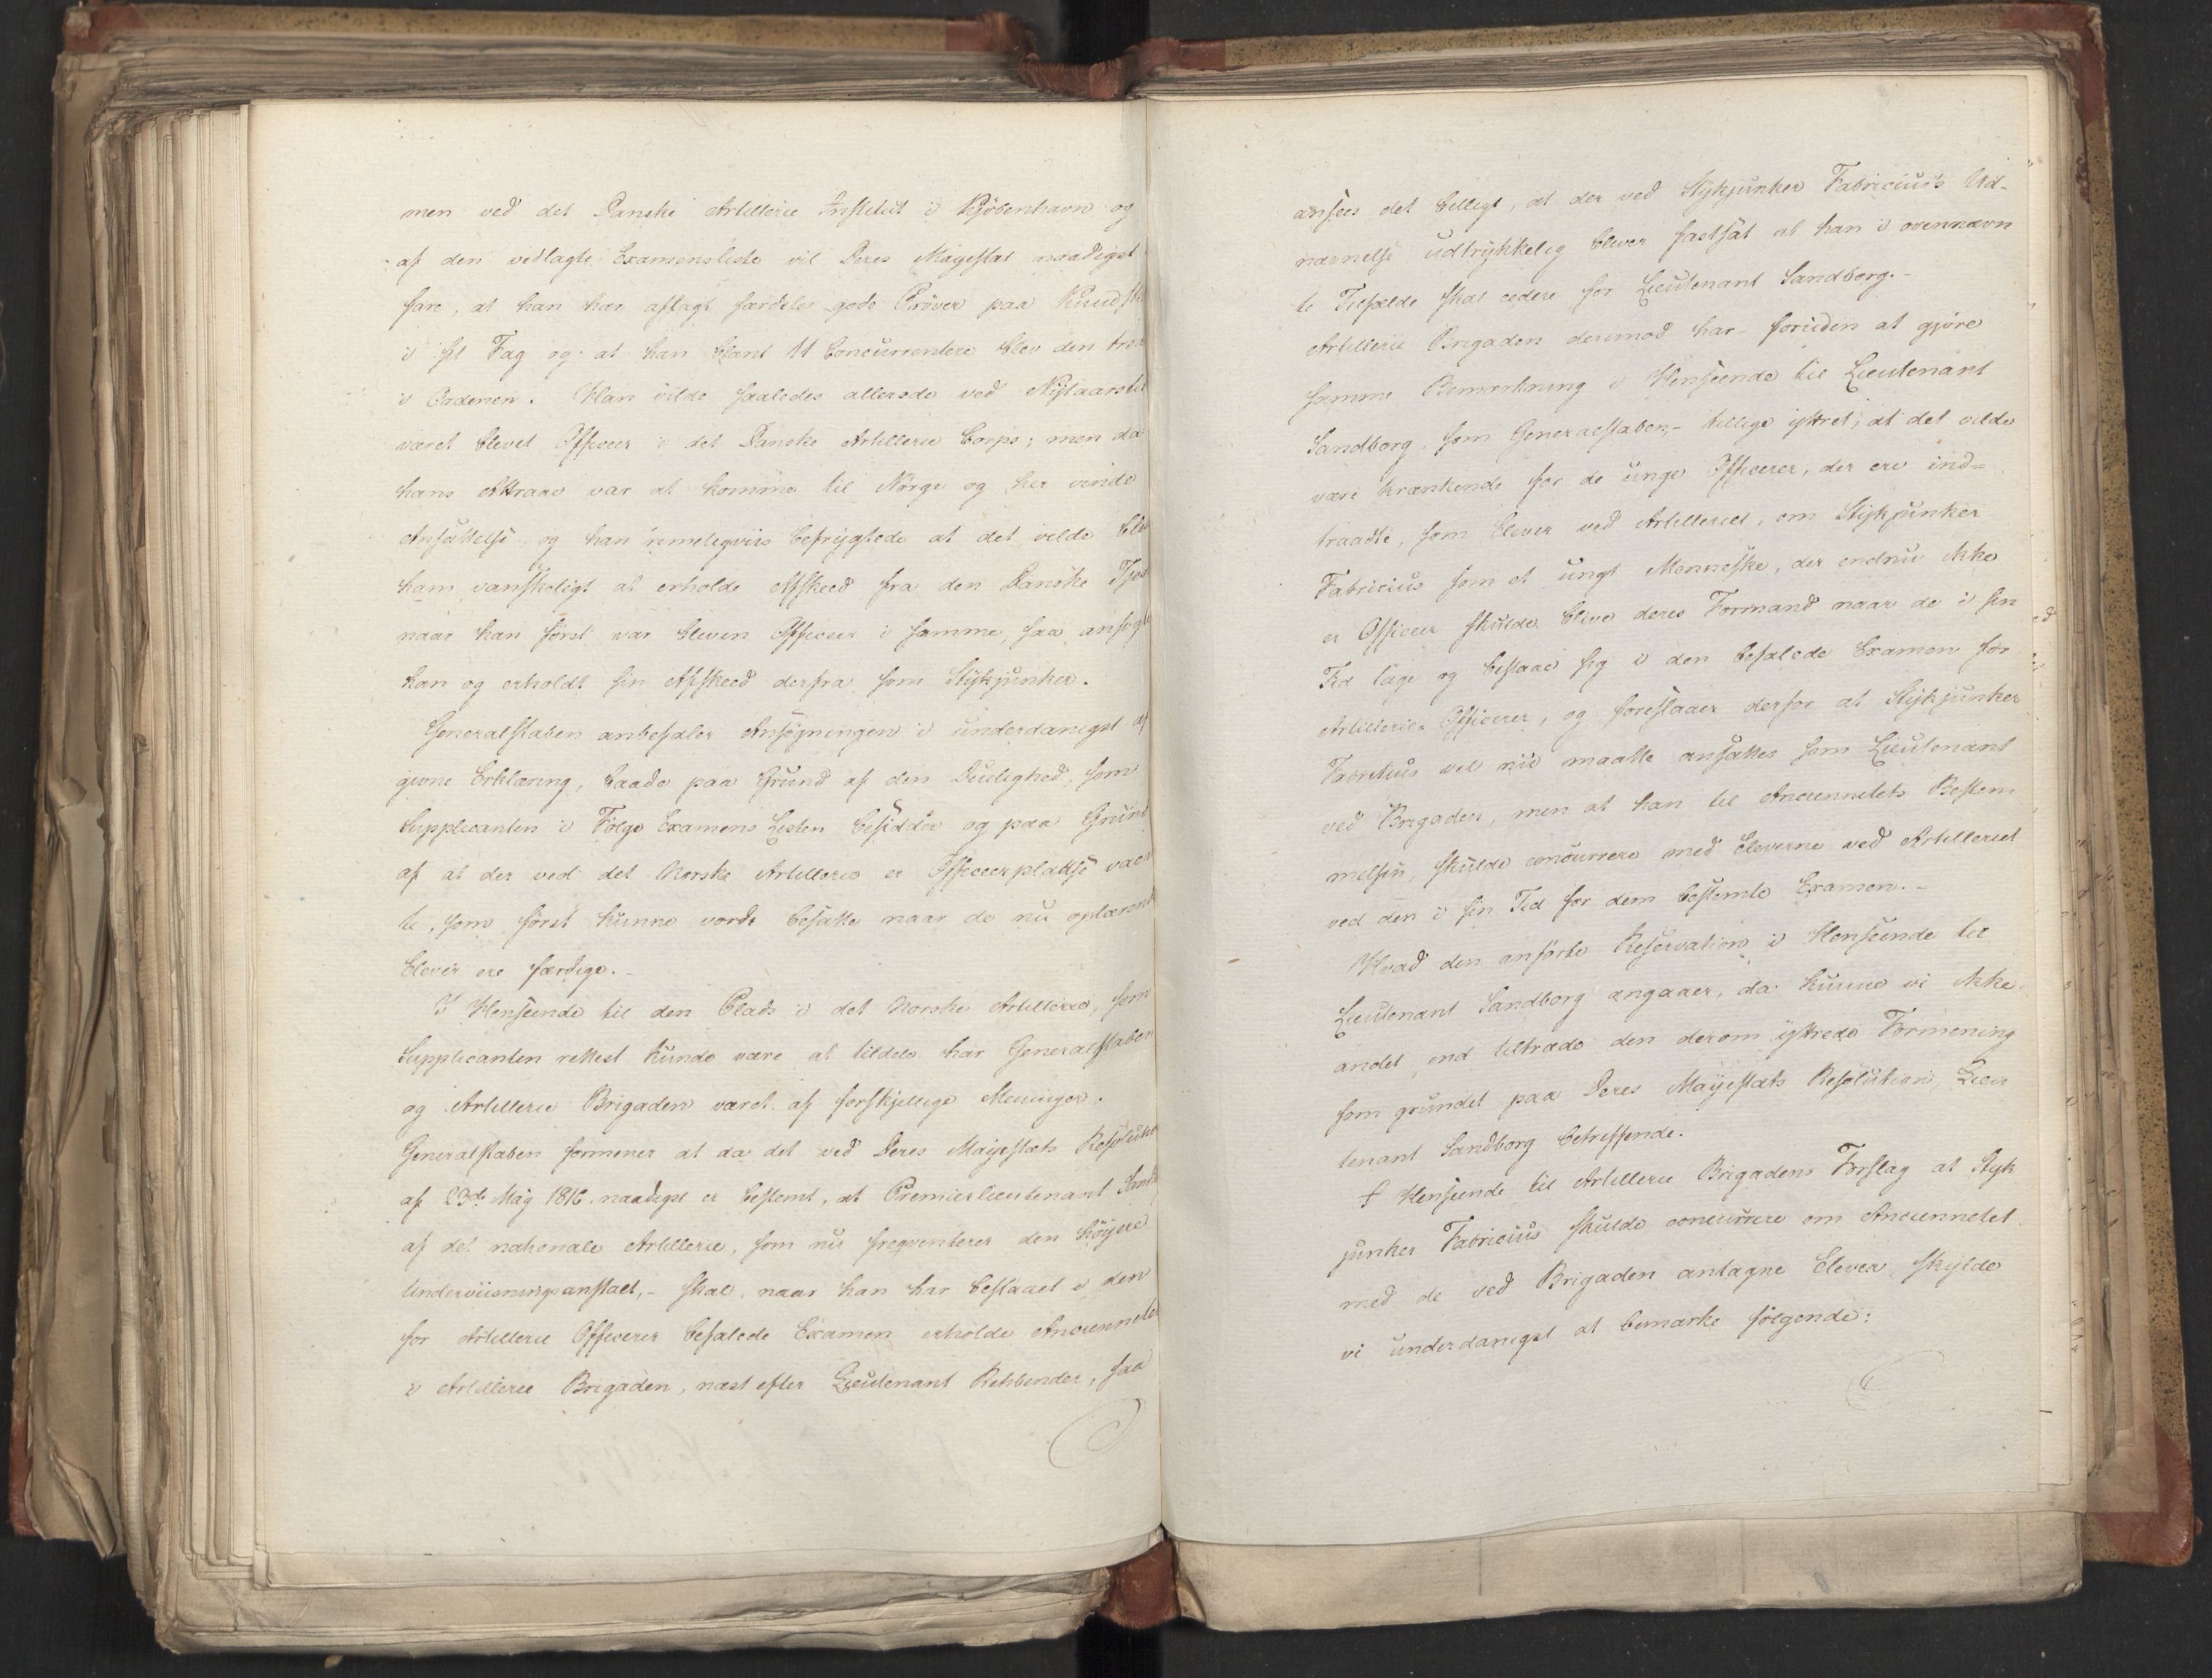 men ved det Danske Artillerie Institut i Kjöbenhavn og
af den vedlagte Examensliste vil Deres Majestæt naadigst
fare, at han har aflagt særdeles gode Pröver paa Kund
i sit Fag og at han blant 11 Concurrentere blev den
i Ordenen. Han vilde saaledes allerede ved Nytaarstid
været blevet Officeer i det Danske Artillerie Corps; men da
hans Attraae var at komme til Norge og her vinde
Ansættelse, og han rimeligviis befrygtede at det vilde
ham vanskeligt at erholde Afskeed fra den Danske
naar han först var bleven Officeer i samme, saa ansögte
han og erholdt sin Afskeed derfra som Stykjunker.
Generalstaben anbefaler Ansögningen i underdanigst af
givne Erklæring, baade paa Grund af den Duelighed, som
Supplicanten i Fölge Examens Listen besidder og paa Grund
af at der ved det Norske Artillerie er Officeerpladse vacan
te, som först kunne vorde besatte naar de nu oplærende
Elever ere færdige.-
I Henseende til den Plads i det Norske Artillerie, som
Supplicanten rettest kunde være at tildele har Generalstaben
og Artillerie Brigaden været af forskjellige Meninger.
Generalstaben formener at da det ved Deres Majestæts Resolution
af 23de May 1816 naadigst er bestemt, at Premierlieutenant Sandb
af det nationale Artillerie, som nu freqventerer den höyere
Underviisningsanstalt,- skal, naar han har bestaaet i den
for Artillerie Officerer befalede Examen erholde Anciennetet
i Artillerie Brigaden, næst efter Lieutenant Rehbinder, saa
ansees det billigt, at der ved Stykjunker Fabricius's Ud-
nævnelse udtrykkelig bliver fastsat at han i ovennævn
te Tilfælde skal cedere for Lieutenant Sandborg.-
Artillerie Brigaden derimod har - foruden at gjöre
samme Bemærkning i Henseende til Lieutenant
Sandborg som Generalstaben,- tillige yttret, at det vilde
være krænkende for de unge Officerer, der ere ind=
traadte, som Elever ved Artilleriet, om Stykjunker
Fabricius som et ungt Menneske, der endnu ikke
er Officeer skulde blive deres Formand naar de i sin
Tid tage og bestaae sig i den befalede Examen for
Artillerie Officerer, og foreslaaer derfor at Stykjunker
Fabricius vel nu maatte ansættes som Lieutenant
ved Brigaden, men at han til Anciennetets Bestem
melsen, skulde concurrere med Eleverne ved Artilleriet
ved den i sin Tid for dem bestemte Examen.-
Hvad den anförte Reservation i Henseende til
Lieutenant Sandborg angaaer, da kunne vi ikke
andet end tiltræde den derom yttrede Formening
som grundet paa Deres Majestæts Resolution, Lieu
tenant Sandborg betreffende.
I Henseende til Artillerie Brigadens Forslag at Styk
junker Fabricius skulde concurrere om Anciennetet
med de ved Brigaden antagne Elever skylde
vi underdanigst at bemærke fölgende: